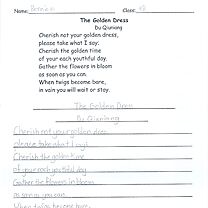 Name: Bernie Class: 
The Golden Dress
Du Qiuniang
Cherish not your golden dress,
please take what I say:
Cherish the golden time
of your each youthful day.
Gather the flowers in bloom
as soon as you can.
When twigs become bare,
in vain you will wait or stay.
The Golden Dress
Du Qiuniang
Cherish not your golden dress
please take what I say:
Cherish the golden time
of your each youthful day.
Gather the flowers in bloom
as soon as you can
When twigs become bare,